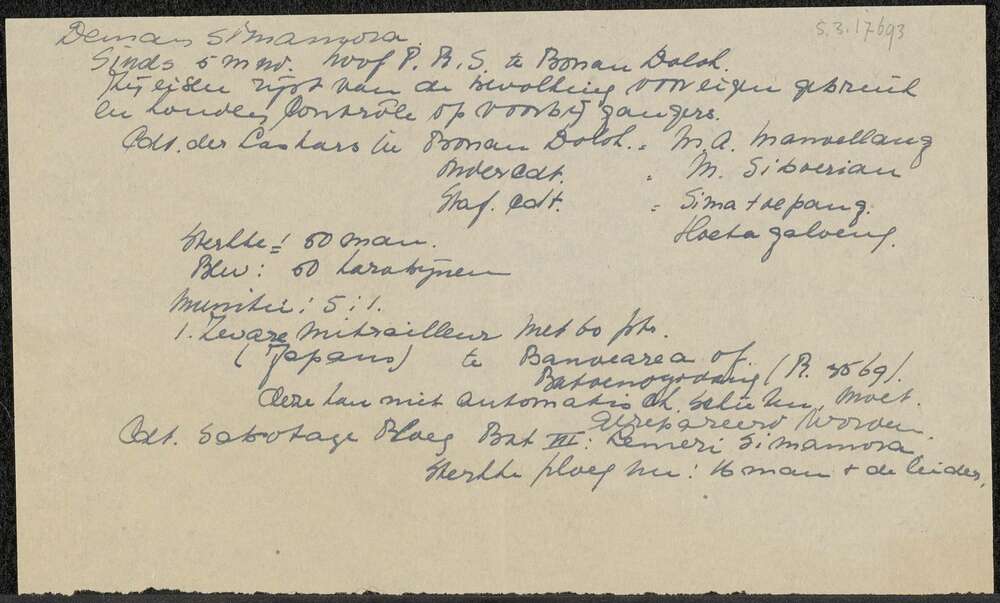 S.3.17693
Deman Simamora.
Sinds 5 mnd. roof P.R.S. te Bonan Doloh.
Zij eisen rijst van de bevolking voor eigen gebruik
en houden Contrôle op voorbijgangers.
Cdt. der Laskars te Bonan Doloh. = M.A. Manoellang
Onder cdt. = M. Siboerian
Staf. Cdt. = Simatoepang.
Hoeta galoeng.
Sterkte: ± 50 man.
Bew: 50 karabijnen
Munitie: 5:1.
1. Zware Mitrailleur met 60 ptr.
(Japans) te Banoearea of.
(R. 3569).
Deze kan niet automatisch. schieten, moet.
gerepareerd worden.
Cdt. Sabotage Ploeg Bat III: Demeri Simamora
Sterkte ploeg nu: 16 man + de leider.